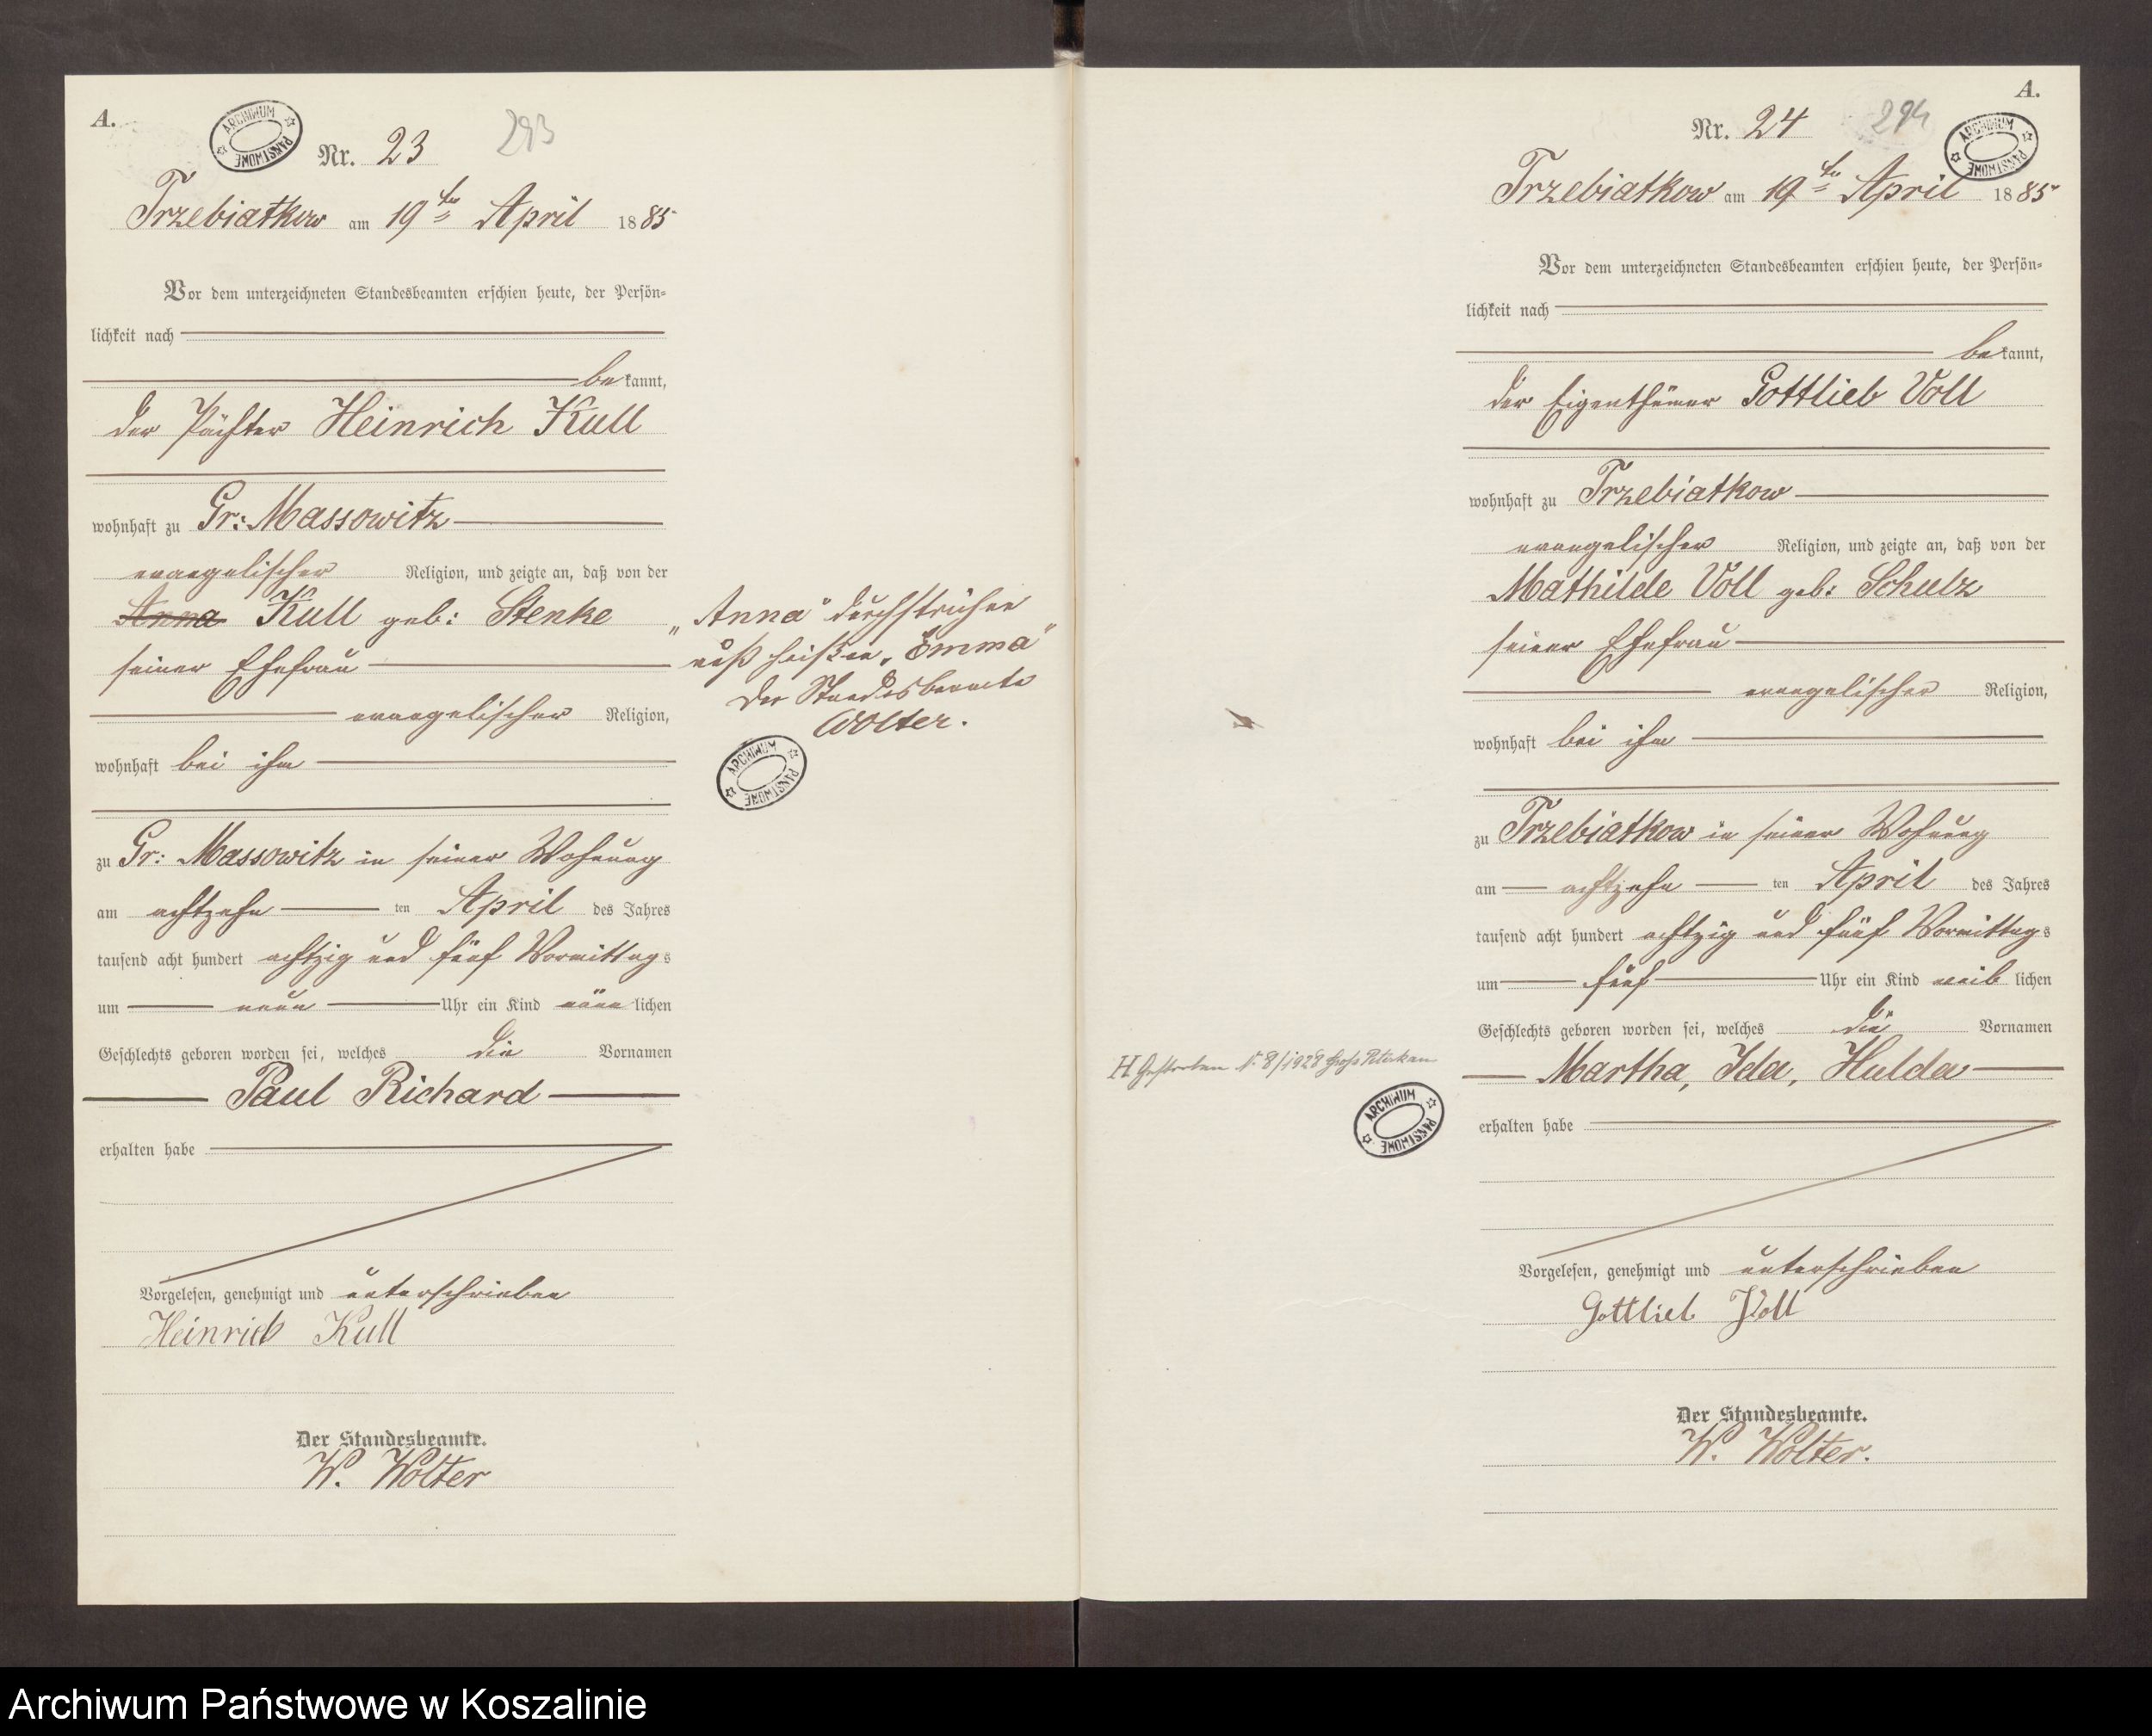 A.
ARCHIWUM PAŃSTWOWE
Nr. 23
293
Trzebiatkow am 19ten April 1885
Vor dem unterzeichneten Standesbeamten erschien heute, der Persön-
lichkeit nach
bekannt,
der Pächter Heinrich Kull
wohnhaft zu Gr: Massowitz
evangelischer Religion, und zeigte an, daß von der
Anna Kull geb: Stenke
seiner Ehefrau
evangelischer Religion,
wohnhaft bei ihm
zu Gr: Massowitz in seiner Wohnung
am achtzehn ten April des Jahres
tausend acht hundert achtzig und fünf Vormittags
um neun Uhr ein Kind männlichen
Geschlechts geboren worden sei, welches die Vornamen
Paul Richard
erhalten habe
Vorgelesen, genehmigt und unterschrieben
Heinrich Kull
Der Standesbeamte.
W. Wolter
„Anna" durchstrichen
muß heißen „Emma"
Der Standesbeamte
Wolter.
ARCHIWUM PAŃSTWOWE
A.
Nr. 24
294
ARCHIWUM PAŃSTWOWE
Trzebiatkow am 19ten April 1885
Vor dem unterzeichneten Standesbeamten erschien heute, der Persön-
lichkeit nach
bekannt,
der Eigenthümer Gottlieb Voll
wohnhaft zu Trzebiatkow
evangelischer Religion, und zeigte an, daß von der
Mathilde Voll geb: Schulz
seiner Ehefrau
evangelischer Religion,
wohnhaft bei ihm
zu Trzebiatkow in seiner Wohnung
am achtzehn ten April des Jahres
tausend acht hundert achtzig und fünf Vormittags
um fünf Uhr ein Kind weiblichen
Geschlechts geboren worden sei, welches die Vornamen
Martha, Ida, Hulda
erhalten habe
Vorgelesen, genehmigt und unterschrieben
Gottlieb Voll
Der Standesbeamte.
W. Wolter.
H. Gestorben Nr. 8/1928 Groß Peterkau
ARCHIWUM PAŃSTWOWE
Archiwum Państwowe w Koszalinie